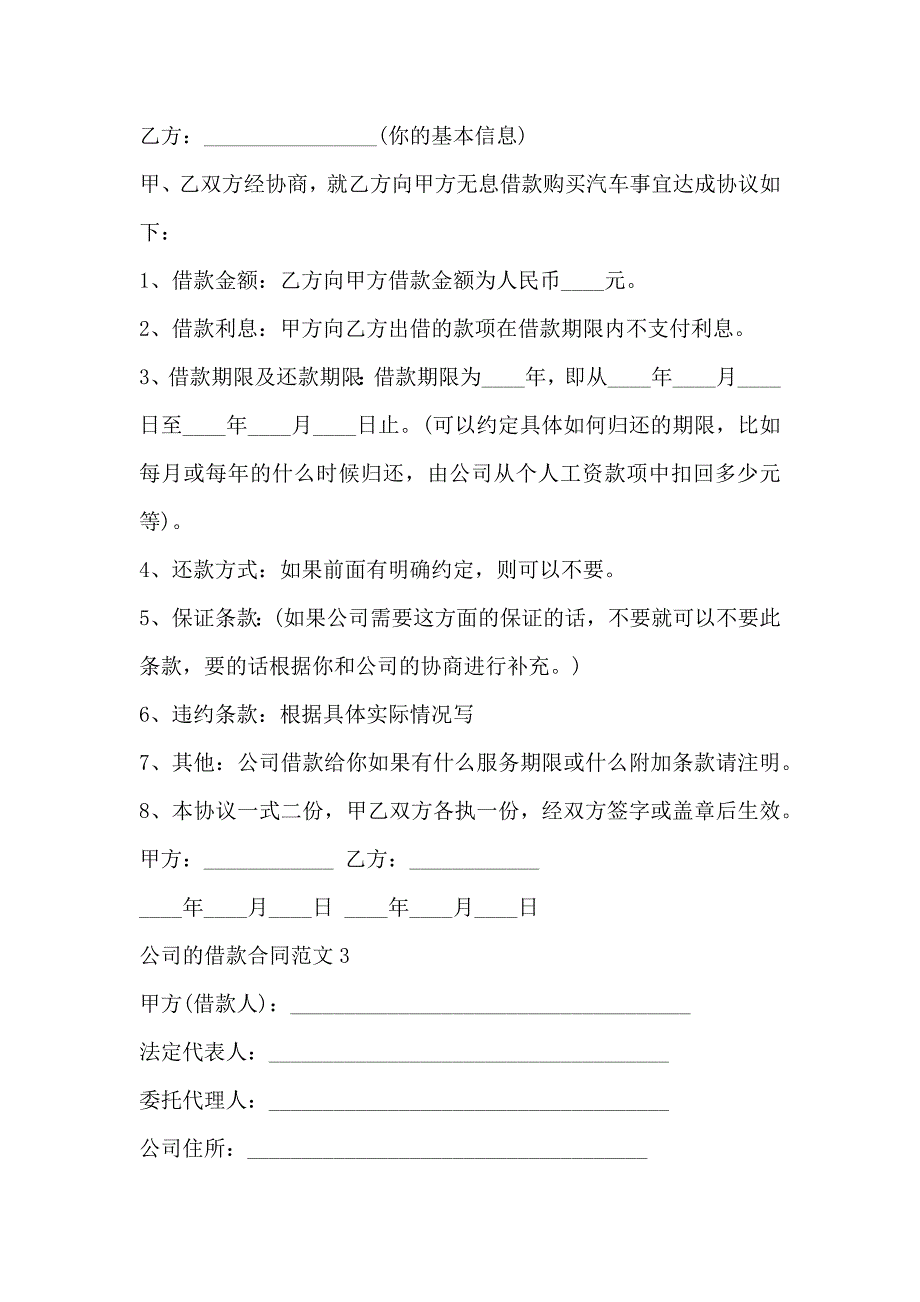 乙方：________________(你的基本信息)
甲、乙双方经协商，就乙方向甲方无息借款购买汽车事宜达成协议如
下：
1、借款金额：乙方向甲方借款金额为人民币____元。
2、借款利息：甲方向乙方出借的款项在借款期限内不支付利息。
3、借款期限及还款期限：借款期限为____年，即从____年____月____
日至____年____月____日止。(可以约定具体如何归还的期限，比如
每月或每年的什么时候归还，由公司从个人工资款项中扣回多少元
等)。
4、还款方式：如果前面有明确约定，则可以不要。
5、保证条款：(如果公司需要这方面的保证的话，不要就可以不要此
条款，要的话根据你和公司的协商进行补充。)
6、违约条款：根据具体实际情况写
7、其他：公司借款给你如果有什么服务期限或什么附加条款请注明。
8、本协议一式二份，甲乙双方各执一份，经双方签字或盖章后生效。
甲方：____________ 乙方：____________
____年____月____日 ____年____月____日
公司的借款合同范文3
甲方(借款人)：_____________________________________
法定代表人：_____________________________________
委托代理人：_____________________________________
公司住所：_____________________________________